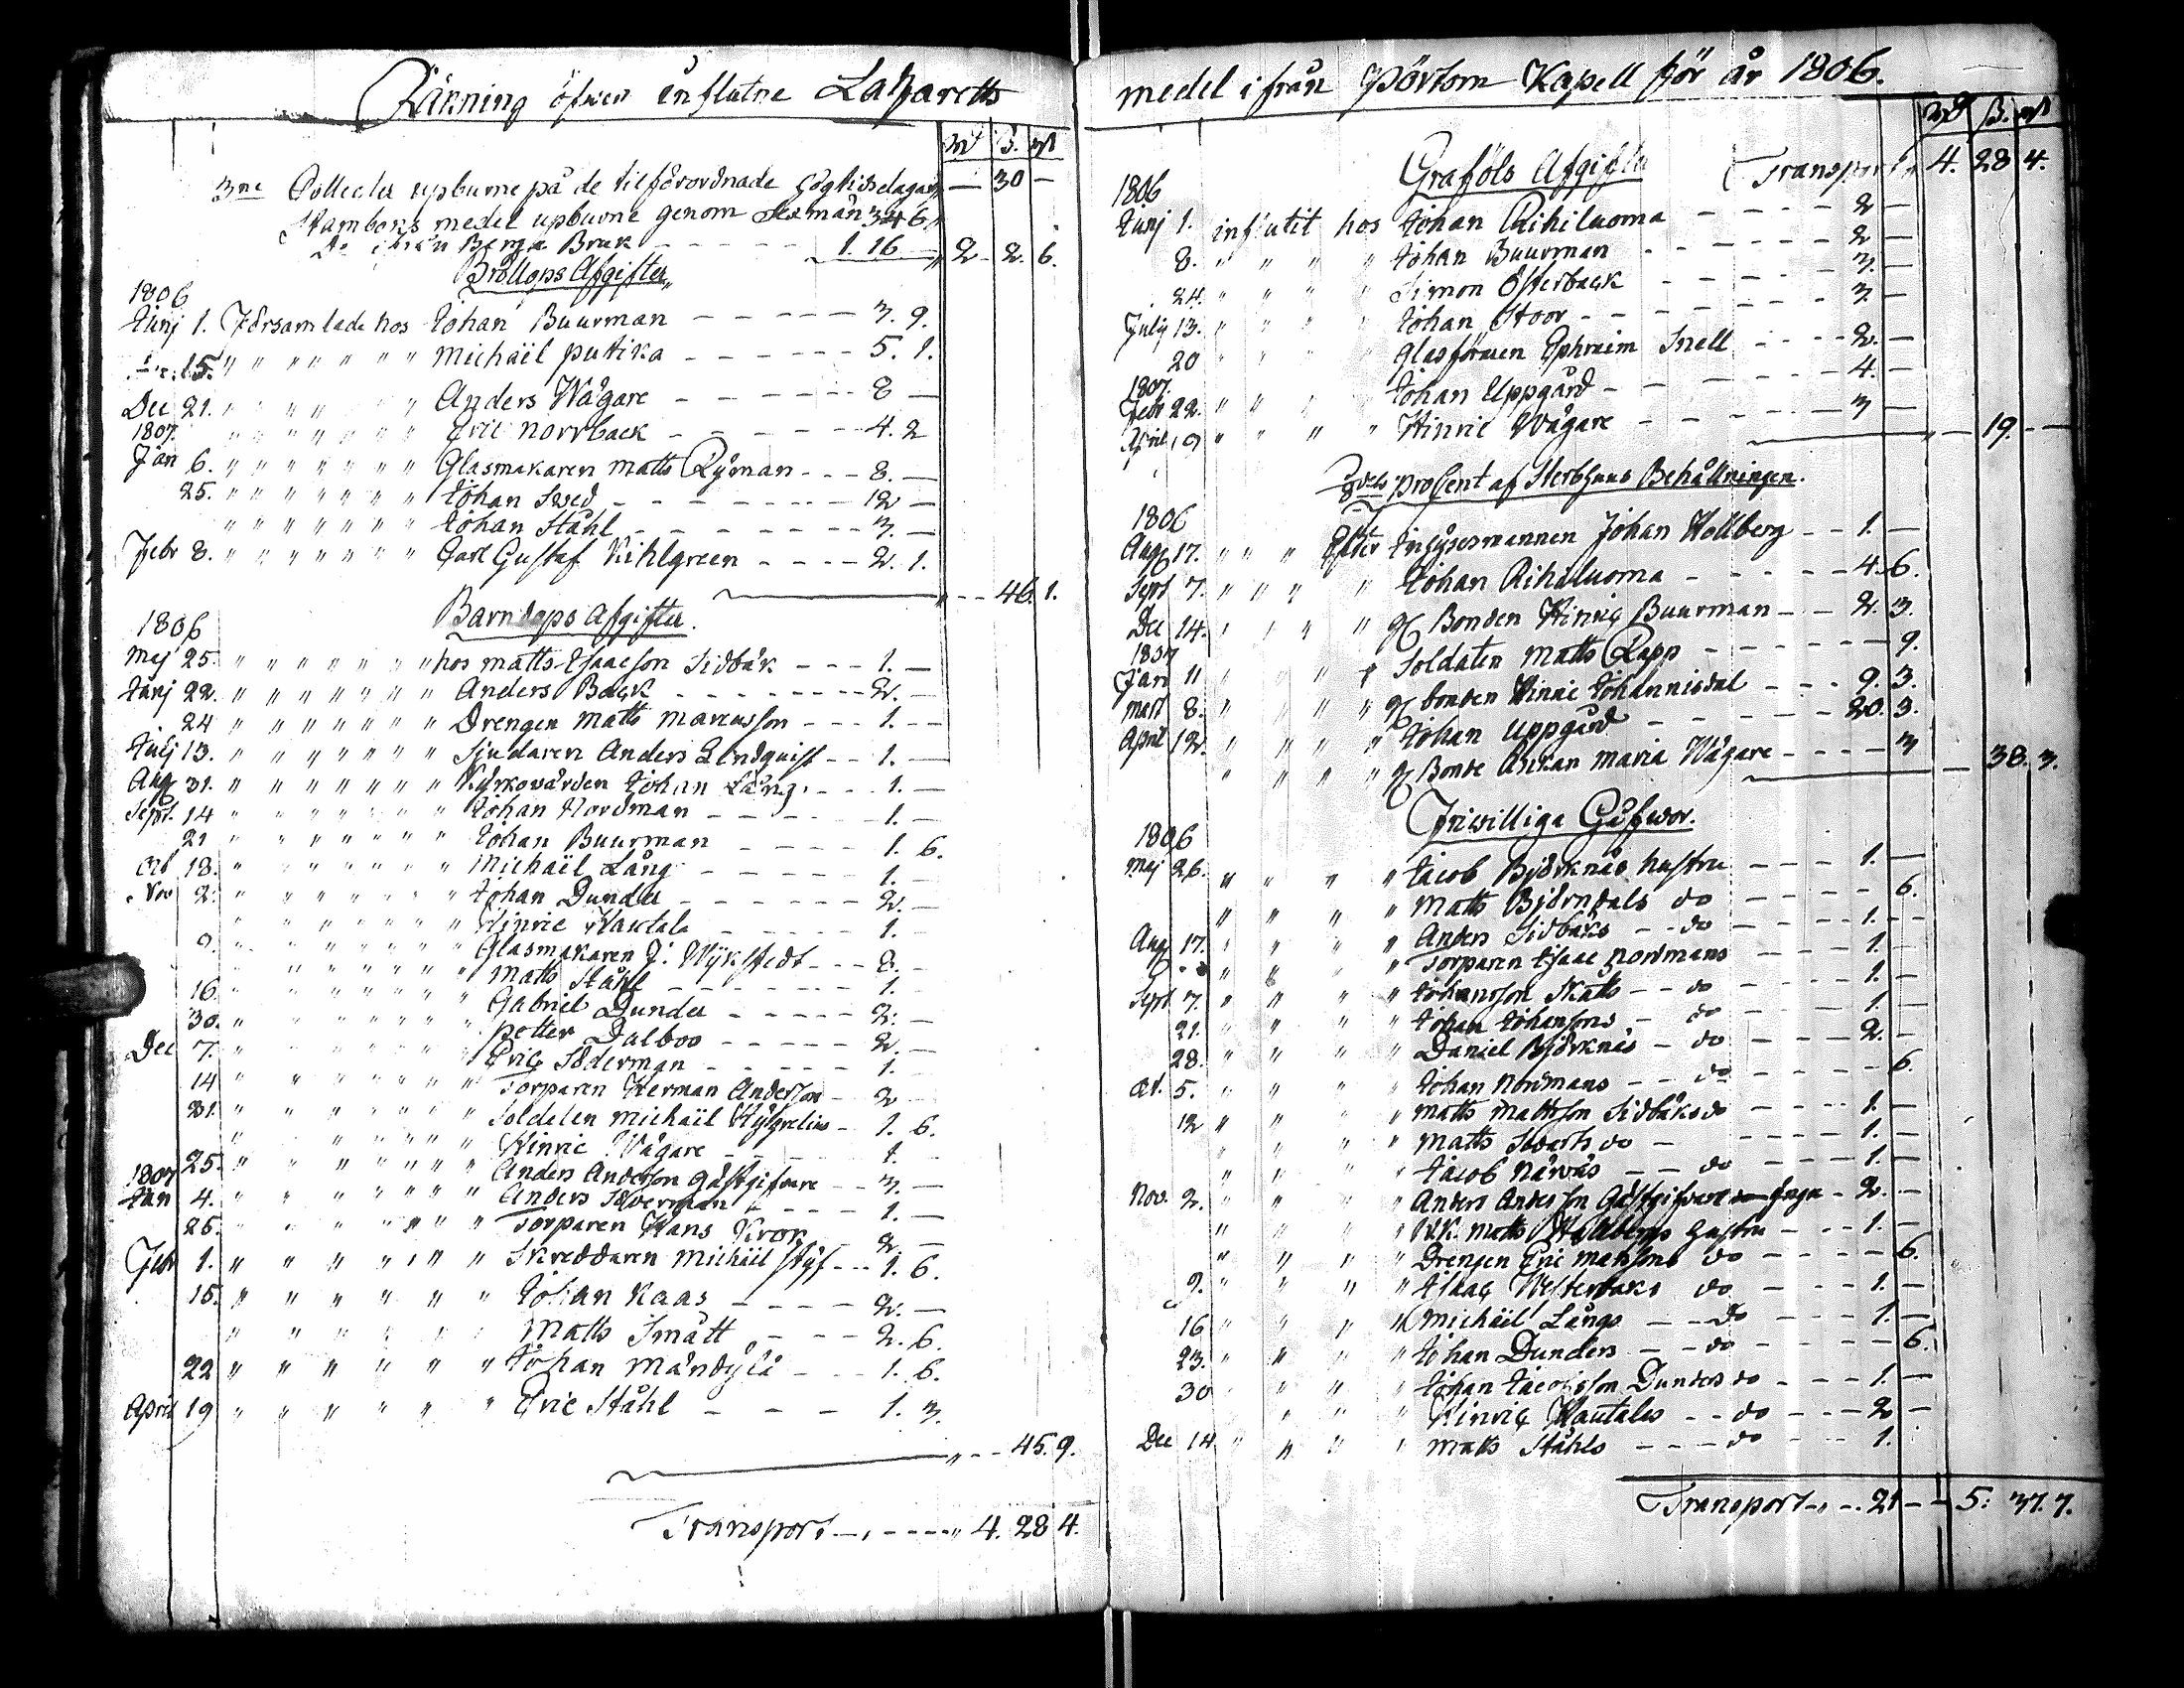 Räkning öfwer influtne Lazaretts
Rd ß. rst
3ne Collecter upburne på de tilförordnade Högtidsdagar — 30 —
Stambons medel upburne genom Sexmän 34 6
Do ifrån Berga Bruk - - - 1. 16 — 2. 2. 6.
Bröllops Afgifter
1806
Junj 1. Församlade hos Johan Buurman - - - - - 3. 9.
15. " " " " " " Michaël putika - - - - - - 5. 1.
Dec 21. " " " " " Anders Wågare - - - - - - 8 —
1807. " " " " " " Eric Norrback - - - - - - 4. 2
Jan 6. " " " " " " " Glasmakaren Matts Ryman - - - 8. —
25. " " " " " " " Johan Swed - - - - - - - 12 —
" " " " " " " Johan Ståhl - - - - - - - 3. —
Febr 8. " " " " " " " Carl Gustaf Kihlgreen - - - - 2. 1.
" - - 46. 1.
Barndops Afgifter.
1806
Maj 25. " " " " " " " hos Matts Isaacson Sidbäk - - - 1. —
Junj 22. " " " " " " " Anders Back - - - - - - - - 2. —
24 " " " " " " " Drengen Matts Marcusson - - - 1. —
Julj 13. " " " " " " " Sjudaren Anders Lindquist - - 1. —
Aug 31. " " " " " " " Kyrkowärden Johan Lång. - - - 1. —
Sept. 14 " " " " " " " Johan Nordman - - - - - 1. —
21 " " " " " " " Johan Buurman - - - - 1. 6.
Oct 18. " " " " " " " Michaël Lång - - - - - 1. —
Nov 2. " " " " " " " Johan Dunder - - - - - - 2. —
" " " " " " " Hinric Kautala - - - - - 1. —
9. " " " " " " " Glasmakaren J: Wykstedt - - - 8. —
" " " " " " " Matts Ståhl - - - - - - - 1. —
16. " " " " " " " Gabriel Dunder - - - - - 2. —
30. " " " " " " " Petter Dalboo - - - - - 2. —
Dec 7. " " " " " " " Eric Söderman - - - - - 1. —
14 " " " " " " " Torparen Herman Anderson - 2 —
21. " " " " " " " Soldaten Michaël - 1. 6.
" " " " " " " Hinric Wågare - - - - - 1. —
25. " " " " " " " Anders Anderson Gästgifvare - - 3. —
1807
Jan 4. " " " " " " " Anders Söderman - - - - 1. —
25. " " " " " " " Torparen Hans Krook - 2 —
Febr 1. " " " " " " " Skreddaren Michaël Styf - - - 1. 6.
15. " " " " " " Johan Kaas - - - - 2. —
" " " " " " Matts Smått - - - 2. 6.
22 " " " " " " Johan Mändylä - - - 1. 6.
April 19 " " " " " " Eric Ståhl - - - 1. 3.
" - - 45. 9.
Transport - - - - - " 4. 28 4.
medel ifrån Pörtom Kapell för år 1806.
Rd ß. rst
Graföls Afgifter Transport 4. 28 4.
1806
Junj 1. influtit hos Johan Rihiluoma - - - - 2 —
8. " " " " Johan Buurman - - - - - - 2 —
24. " " " " Simon Österback - - - - - 3. —
Julij 13. " " " " Johan Stoor - - - - - - - 3. —
20 " " " " Glasförare Ephraim Snell - - - - 2. —
1807.
Febr 22. " " " " Johan Uppgård - - - - - - 4. —
April 19 " " " " Hinric Wågare - - - - - - 3 —
— 19. —
proCent af Sterbhuus Behållningen.
1806
Aug 17. " " " Efter Johan Hollberg - - 1. —
Sept 7. " " " " Johan Rihiluoma - - - - - 4. 6.
Dec 14. " " " " Bonden Hinric Buurman - - - 2. 3.
1807
" " " " Soldaten Matts Rapp - - - - - - 9.
Jan 11 " " " " bonden Hinric Johannisdal - - - 9. 3.
Mart 8. " " " " Johan Uppgård - - - - - - 20. 3.
April 12. " " " " Bonde Maria Wågare - - - - 3
— 38. 3.
Friwilliga Gåfwor.
1806
Maj 26. " " " " Jacob Björknäs hustru - - - 1. —
" " " " Matts Björndals do - - - - 6.
Aug 17. " " " " Anders Sidbäks - - do - - - - 1. —
" " " " Torparen Isaac Nordmans - - - 1. —
Sept 7. " " " " Johansson Skatts - - do - - - - 1. —
21. " " " " Johan Johansons - do - - - 1. —
28. " " " " Daniel Björknäs - do - - - 2. —
Oct. 5. " " " " Johan Nordmans - - do - - - - 6.
12 " " " " Matts Mattsson Sidbäks do - - - 1. —
" " " " Matts Swarts do - - - - - 1. —
" " " " Jacob Närwäs - - do - - - - 1. —
Nov. 2. " " " " Anders Anderson Gästgifvare - 2. —
" " " " Matts hustru - - - 1. —
" " " " Drengen Eric Matssons do - - - - 6.
9. " " " " Isaac Westerbäks do - - - 1. —
16 " " " " Michäel Långs - - do - - - 1. —
23. " " " " Johan Dunders - - do - - - - 6.
30 " " " " Johan Jacobsson Dunders do - - - 1. —
" " " " Hinric Kautalas - - do - - - 2 —
Dec 14 " " " " Matts Ståhls - - - do - - - 1.
Transport - - - 21 — - 5. 37. 7.